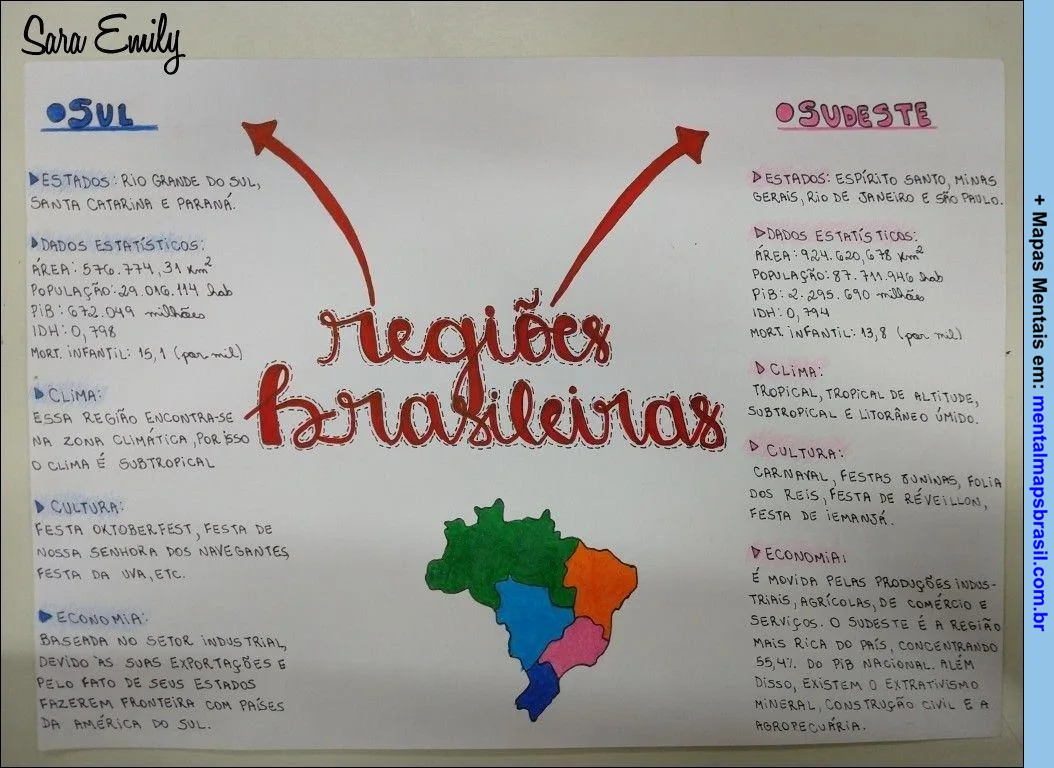 Sara Emily
SUL
ESTADOS: RIO GRANDE DO SUL,
SANTA CATARINA E PARANÁ.
DADOS ESTATÍSTICOS:
ÁREA: 576.774,31 km²
POPULAÇÃO: 29.016.114 hab
PIB: 672.049 milhões
IDH: 0,798
MORT. INFANTIL: 15,1 (por mil)
CLIMA:
ESSA REGIÃO ENCONTRA-SE
NA ZONA CLIMÁTICA, POR ISSO
O CLIMA É SUBTROPICAL
CULTURA:
FESTA OKTOBERFEST, FESTA DE
NOSSA SENHORA DOS NAVEGANTES,
FESTA DA UVA, ETC.
ECONOMIA:
BASEADA NO SETOR INDUSTRIAL,
DEVIDO ÀS SUAS EXPORTAÇÕES E
PELO FATO DE SEUS ESTADOS
FAZEREM FRONTEIRA COM PAÍSES
DA AMÉRICA DO SUL.
regiões
brasileiras
SUDESTE
ESTADOS: ESPÍRITO SANTO, MINAS
GERAIS, RIO DE JANEIRO E SÃO PAULO.
DADOS ESTATÍSTICOS:
ÁREA: 924.620,678 km²
POPULAÇÃO: 87.711.946 hab
PIB: 2.295.690 milhões
IDH: 0,794
MORT. INFANTIL: 13,8 (por mil)
CLIMA:
TROPICAL, TROPICAL DE ALTITUDE,
SUBTROPICAL E LITORÂNEO ÚMIDO.
CULTURA:
CARNAVAL, FESTAS JUNINAS, FOLIA
DOS REIS, FESTA DE RÉVEILLON,
FESTA DE IEMANJÁ.
ECONOMIA:
É MOVIDA PELAS PRODUÇÕES INDUS-
TRIAIS, AGRÍCOLAS, DE COMÉRCIO E
SERVIÇOS. O SUDESTE É A REGIÃO
MAIS RICA DO PAÍS, CONCENTRANDO
55,4% DO PIB NACIONAL. ALÉM
DISSO, EXISTEM O EXTRATIVISMO
MINERAL, CONSTRUÇÃO CIVIL E A
AGROPECUÁRIA.
+ Mapas Mentais em: mentalmapsbrasil.com.br